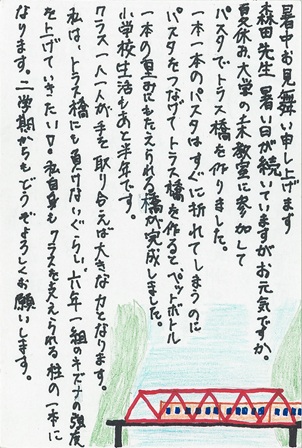 暑中お見舞い申し上げます
森田先生 暑い日が続いていますがお元気ですか。
夏休み、大学の工末教室に参加して
パスタでトラス橋を作りました。
一本一本のパスタはすぐに折れてしまうのに
パスタをつなげてトラス橋を作るとペットボトル
一本の重みにもたえられる橋が完成しました。
小学校生活もあと半年です。
クラス一人一人が手を取り合えば大きな力となります。
私は、トラス橋にも負けないぐらい、六年一組のキズナの強度
を上げていきたいです。私自身もクラスを支えられる柱の一本に
なります。二学期からもどうぞよろしくお願いします。